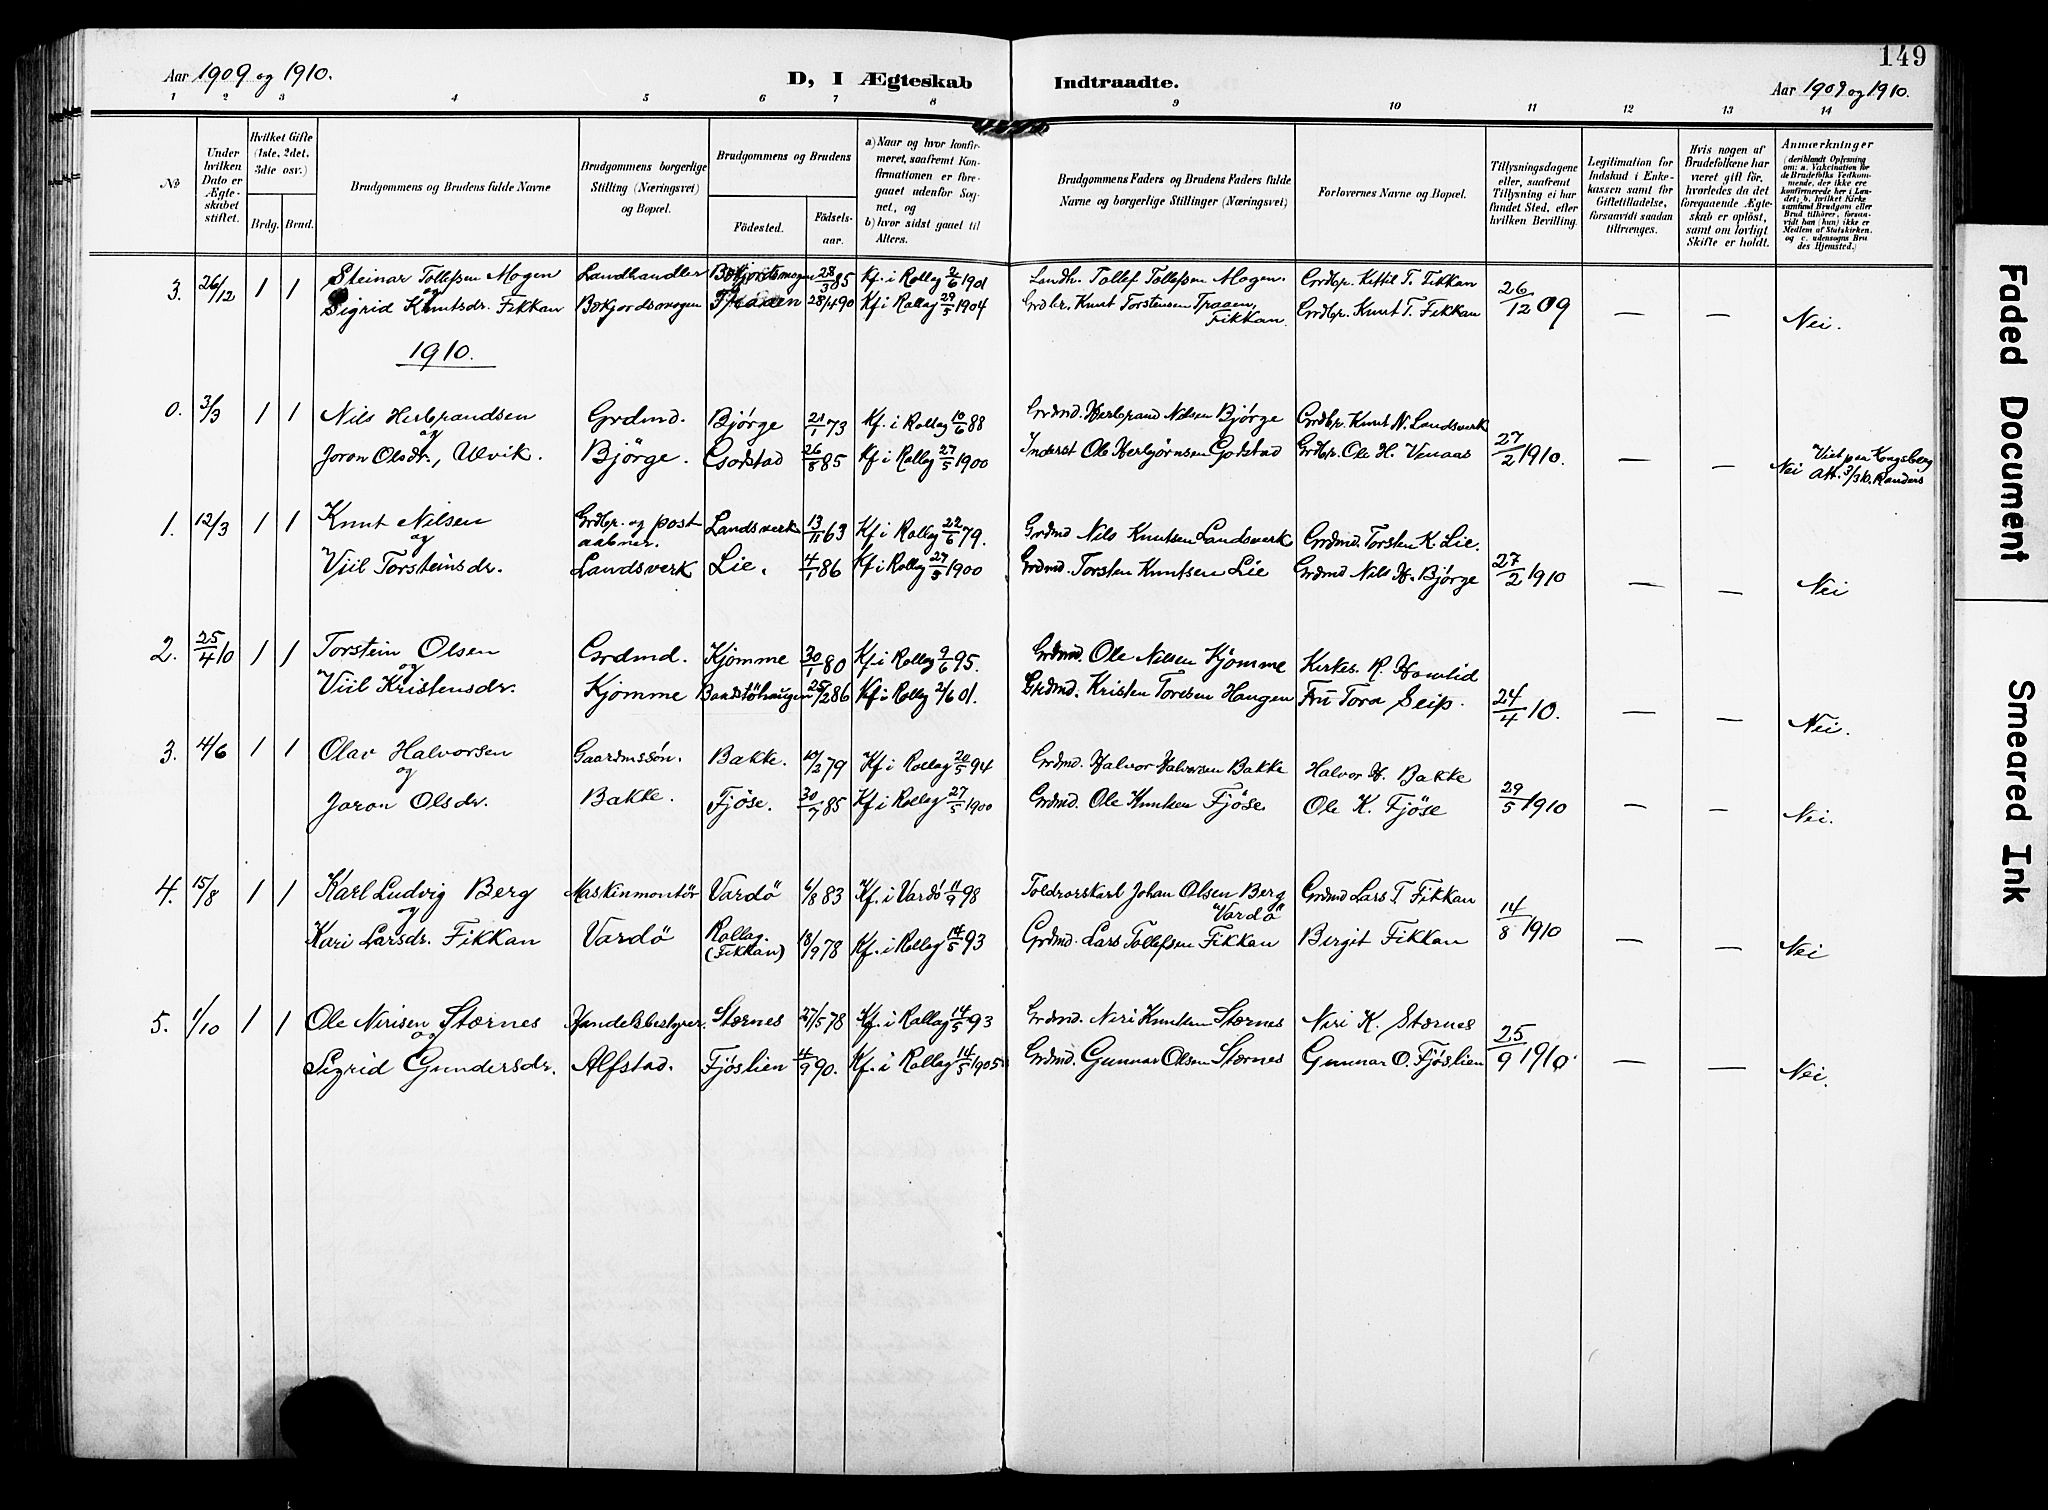 149
Aar 1909 og 1910.
D, I Ægteskab Indtraadte.
Aar 1909 og 1910.
1 2 3 4 5 6 7 8 9 10 11 12 13 14
No
Under hvilken Dato er Ægteskabet stiftet.
Hvilket Gifte (1ste, 2det, 3die osv.)
Brdg. Brud.
Brudgommens og Brudens fulde Navne
Brudgommens borgerlige Stilling (Næringsvei) og Bopæl.
Brudgommens og Brudens
Fødested. Fødselsaar.
a) Naar og hvor konfirmeret, saafremt Konfirmationen er foregaaet udenfor Sognet, og
b) hvor sidst gaaet til Alters.
Brudgommens Faders og Brudens Faders fulde Navne og borgerlige Stillinger (Næringsvei)
Forlovernes Navne og Bopæl.
Tillysningsdagene eller, saafremt Tillysning ei har fundet Sted, efter hvilken Bevilling.
Legitimation for Indskud i Enkekassen samt for Giftetilladelse, forsaavidt saadan tiltrænges.
Hvis nogen af Brudefolkene har været gift før, hvorledes da det foregaaende Ægteskab er opløst, samt om lovligt Skifte er holdt.
Anmerkninger
(deriblandt Oplysning om: a. Vakcination for de Brudefolks Vedkommende, der ikke ere konfirmerede her i Landet; b. hvilket Kirkesamfund Brudgom eller Brud tilhører, forsaavidt han (hun) ikke er Medlem af Statskirken. og c. udensogns Brudes Hjemsted.)
3. 26/12 1 1 Steinar Tollefsen Mogen Landhandler 28/3 85 Kf. i Rollag 2/6 1901 Landh. Tollef Tollefsen Mogen. Grdbr. Kittil T. Fikkan
og
Sigrid Knutsdr. Fikkan Bokjordsmogen Traaen 28/4 90 Kf i Rollag 29/5 1904 Grdbr. Knut Torstensen Traaen, Fikkan. Grdbr. Knut T. Fikkan 26/12 09 — — Nei.
1910.
0. 3/3 1 1 Nils Herbrandsen Grdmd. Bjørge 21/1 73 Kf. i Rollag 10/6 88 Grdmd. Herbrand Nilsen Bjørge Grdbr. Knut N. Landsverk
og
Joron Olsdr., Ulvik. Bjørge. Godstad 26/8 85 Kf i Rollag 27/5 1900 Inderst Ole Herbjørnsen Godstad Grdbr. Ole H. 27/2 1910. — — Nei Viet paa Kongsberg Att. 3/3 k. Randers
1. 12/3 1 1 Knut Nilsen Grdbr. og postaabner. Landsverk 13/11 63 Kf i Rollag 22/6 79. Grdmd Nils Knutsen Landsverk Grdmd. Torsten K. Lie.
og
Viil Torsteinsdr. Landsverk Lie. 4/1 86 Kf i Rollag 27/5 1900 Grdmd. Torsten Knutsen Lie Grdmd Nils H. Bjørge 27/2 1910 — — Nei
2. 25/4 10 1 1 Torstein Olsen Grdmd. Kjomme 30/1 80 Kf. i Rollag 9/6 95. Grdmd. Ole Nilsen Kjomme Kirkes. R. Homlid
og
Viil Kristensdr. Kjomme Baadstöhaugen 25/2 86 Kf i Rollag 2/6 01. Grdmd. Kristen Toresen Haugen Fru Tora Seip. 24/4 10. — — Nei.
3. 4/6 1 1 Olav Halvorsen Gaardmssøn. Bakke. 10/2 79 Kf i Rollag 20/5 94 Grdmd. Halvor Halvorsen Bakke Halvor H. Bakke
og
Joron Olsdr. Bakke. Fjøse. 30/7 85 Kf i Rollag 27/5 1900 Grdmd. Ole Knutsen Fjöse Ole K. Fjöse 29/5 1910 — — Nei.
4. 15/8 1 1 Karl Ludvig Berg Maskinmontör Vardö 6/8 83 Kf. i Vardö 11/9 98 Toldrorskarl Johan Olsen Berg Vardö Grdmd Lars T. Fikkan
og
Kari Larsdr. Fikkan Vardö Rollag (Fikkan) 18/9 78 Kf. i Rollag 14/5 93 Grdmd. Lars Tollefsen Fikkan Birgit Fikkan 14/8 1910 — — Nei
5. 1/10 1 1 Ole Nirisen Stærnes Handelsbestyrer. Stærnes 27/5 78 Kf. i Rollag 14/5 93 Grdmd. Niri Knutsen Stærnes Niri K. Stærnes
og
Sigrid Gundersdr. Alfstad. Fjöslien 4/9 90. Kf. i Rollag 14/5 1905 Grdmd. Gunnar Olsen Stærnes Gunnar O. Fjöslien 25/9 1910 — — Nei.
Faded Document
Smeared Ink